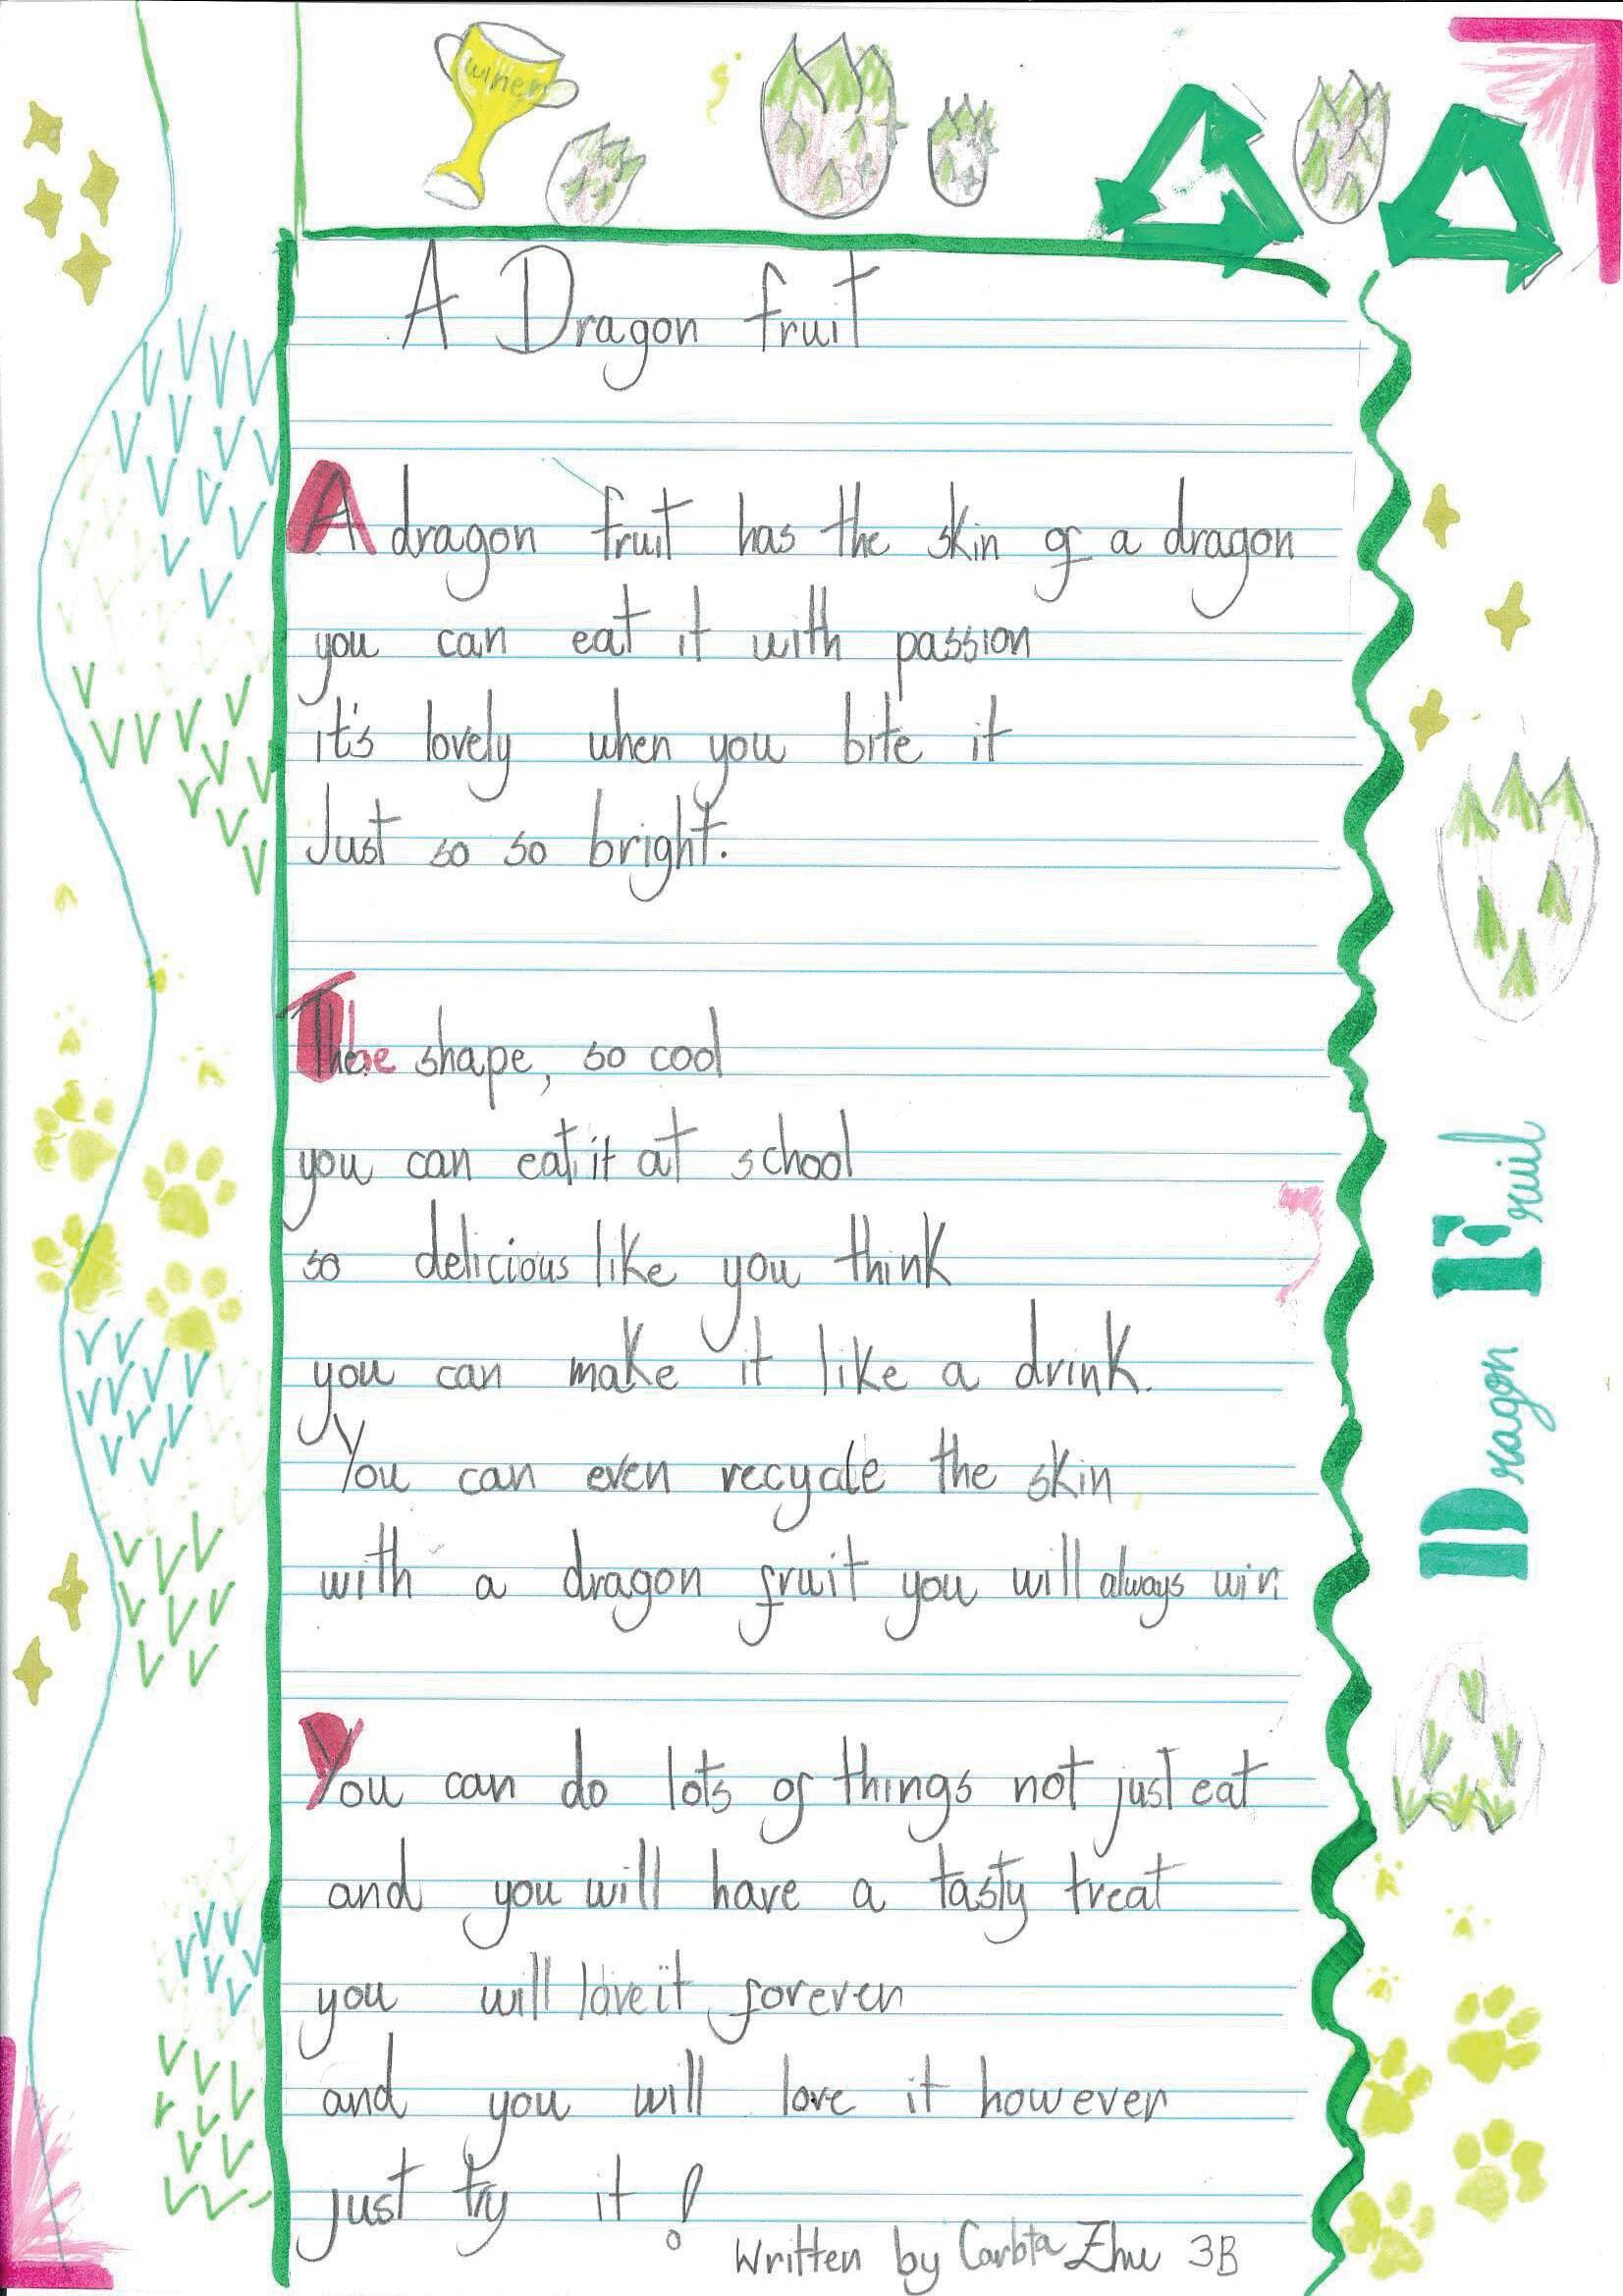 wher
A Dragon fruit
A dragon fruit has the skin of a dragon
you can eat it with passion
it's lovely when you bite it
Just so so bright.
shape, so cool
you can eat it at school
so delicious like you think
you can make it like a drink.
You can even recycle the skin
with a dragon fruit you will always win
You can do lots of things not just eat
and you will have a tasty treat
you will love it forever
and you will love it however
just try it!
Written by Zhu 3B
Dragon Fruit